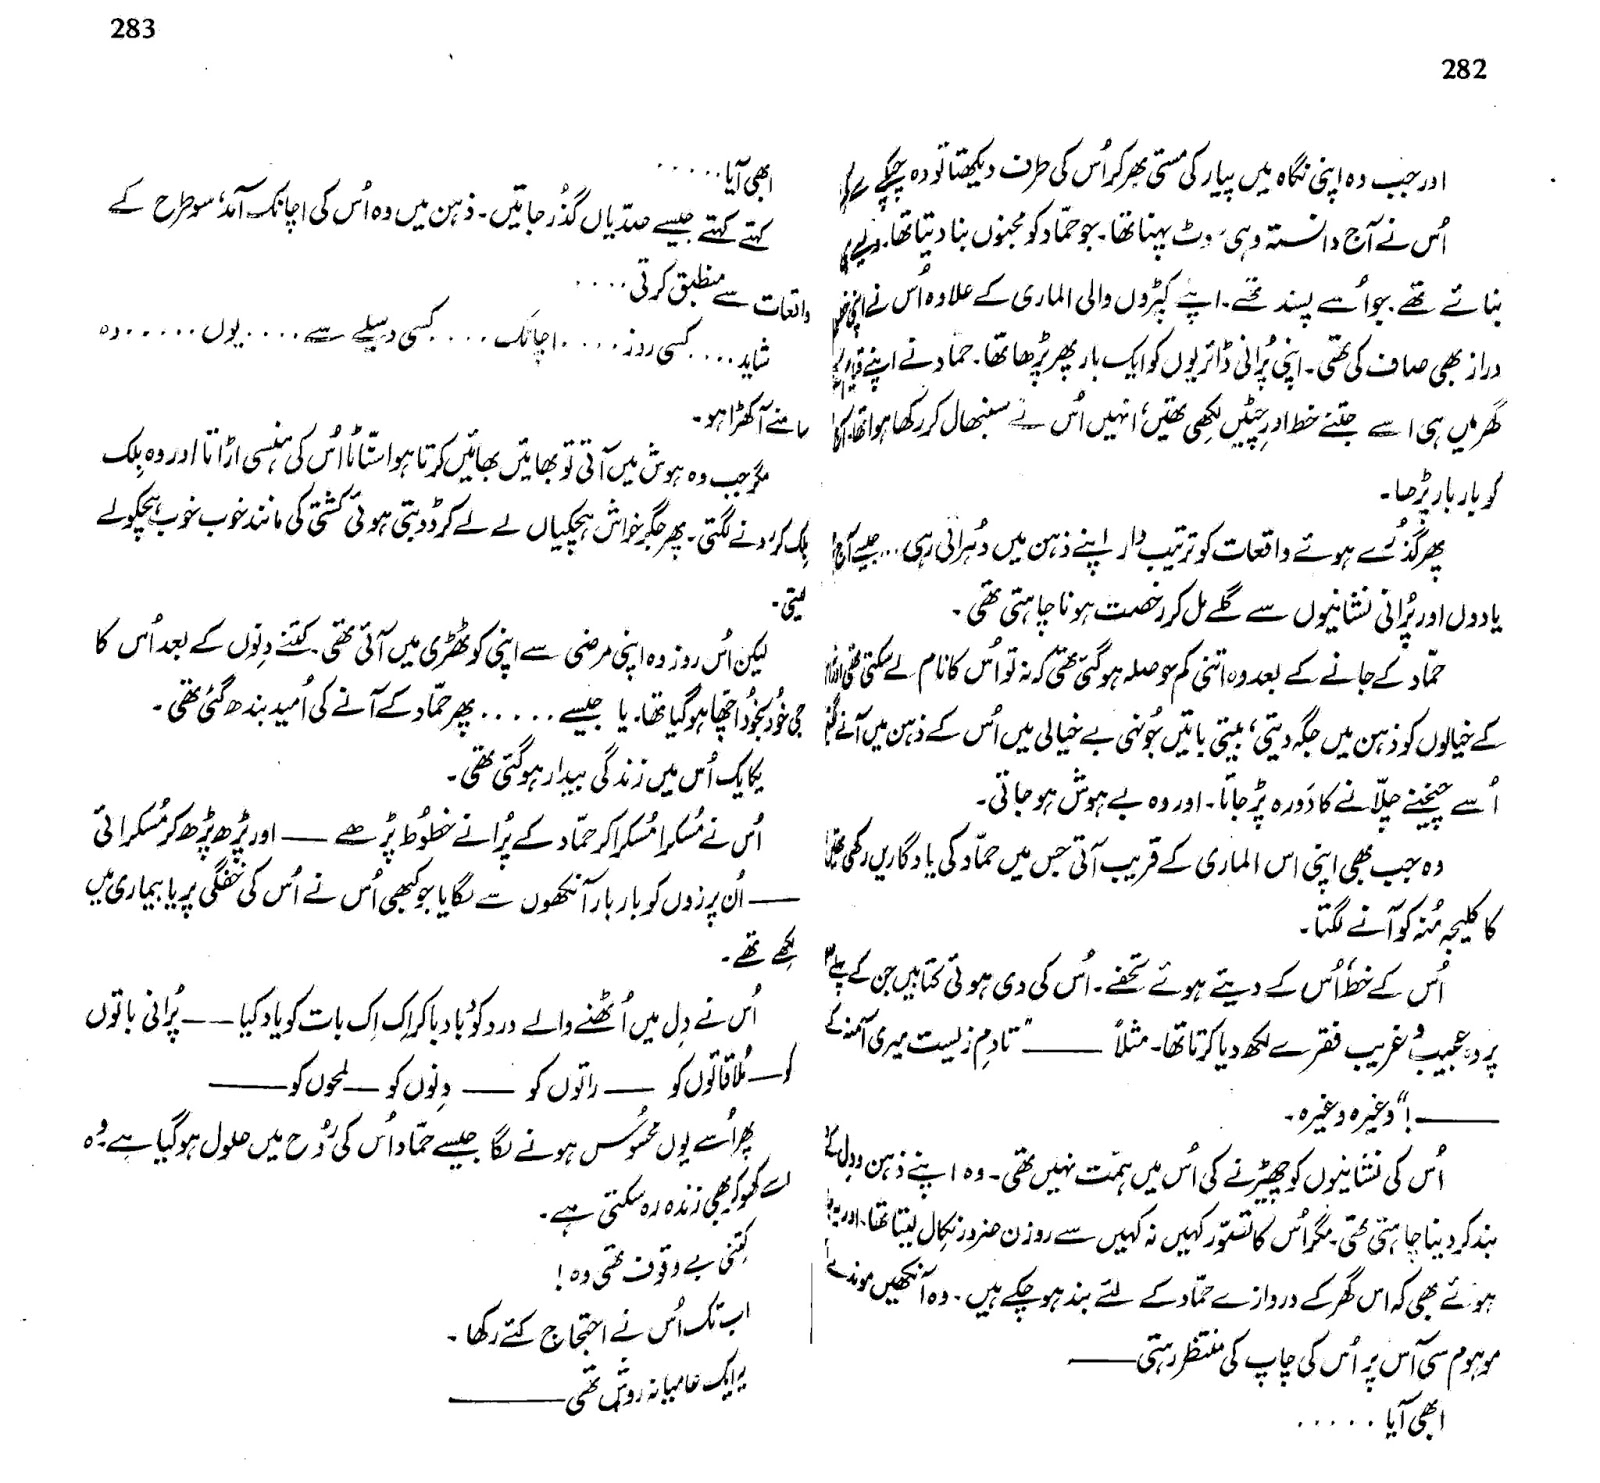 282
اور جب وہ اپنی نگاہ میں پیار کی مستی بھر کر اُس کی طرف دیکھتا تو وہ چپکے سے
اُس نے آج دانستہ وہی سوٹ پہنا تھا۔ جو حمّاد کو مجنوں بنا دیتا تھا۔ ویسے
بنائے تھے۔ جو اُسے پسند تھے۔ اپنے کپڑوں والی الماری کے علاوہ اُس نے اپنی
دراز بھی صاف کی تھی۔ اپنی پُرانی ڈائریوں کو ایک بار پھر پڑھا تھا۔ حمّاد نے اپنے
گھر میں ہی اسے جتنے خط اور چِٹیں لکھی تھیں، انہیں اُس نے سنبھال کر رکھا ہوا تھا۔
کو بار بار پڑھا۔
پھر گذُرے ہوئے واقعات کو ترتیب وار اپنے ذہن میں دُہراتی رہی ... جیسے آج
یادوں اور پُرانی نشانیوں سے گلے مل کر رخصت ہونا چاہتی تھی۔
حمّاد کے جانے کے بعد وہ اتنی کم حوصلہ ہو گئی تھی کہ نہ تو اُس کا نام لے سکتی تھی
کے خیالوں کو ذہن میں جگہ دیتی، بیتی باتیں یُونہی بے خیالی میں اُس کے ذہن میں آنے
اُسے چیخنے چلّانے کا دَورہ پڑ جاتا۔ اور وہ بے ہوش ہو جاتی۔
وہ جب بھی اپنی اس الماری کے قریب آتی جس میں حمّاد کی یادگاریں رکھی
کا کلیجہ مُنہ کو آنے لگتا۔
اُس کے خط، اُس کے دیتے ہوئے تحفے۔ اُس کی دی ہوئی کتابیں جن کے پہلے
پر وہ عجیب و غریب فقرے لکھ دیا کرتا تھا۔ مثلاً —— "تادمِ زیست میری آمنہ کے
——!" وغیرہ وغیرہ۔
اُس کی نشانیوں کو چھیڑنے کی اُس میں ہمّت نہیں تھی۔ وہ اپنے ذہن و دل کے
بند کر دینا چاہتی تھی۔ مگر اُس کا تصوّر کہیں نہ کہیں سے روزن ضرور نکال لیتا تھا۔ اور
ہوئے بھی کہ اس گھر کے دروازے حمّاد کے لئے بند ہو چکے ہیں۔ وہ آنکھیں موندے
موہوم سی آس پر اُس کی چاپ کی منتظر رہتی ——
ابھی آیا . . . . .
283
ابھی آیا . . . . .
کہتے کہتے جیسے صدّیاں گذُر جاتیں۔ ذہن میں وہ اُس کی اچانک آمد، سو طرح کے
واقعات سے منطبق کرتی . . . .
شاید . . . . کسی روز . . . . اچانک . . . . کسی وسیلے سے . . . . یوں . . . . . وہ
سامنے آ کھڑا ہو۔
مگر جب وہ ہوش میں آتی تو بھائیں بھائیں کرتا ہوا سنّاٹا اُس کی ہنسی اڑاتا اور وہ بِلک
بِلک کر رونے لگتی۔ پھر جگر خراش ہچکیاں لے لے کر ڈوبتی ہوئی کشتی کی مانند خوب خوب ہچکولے
لیتی۔
لیکن اُس روز وہ اپنی مرضی سے اپنی کوٹھڑی میں آئی تھی۔ کتنے دِنوں کے بعد اُس کا
جی خُود بخُود اچھا ہو گیا تھا۔ یا جیسے . . . . . پھر حمّاد کے آنے کی اُمید بندھ گئی تھی۔
یکایک اُس میں زندگی بیدار ہو گئی تھی۔
اُس نے مُسکرا مُسکرا کر حمّاد کے پُرانے خطُوط پڑھے —— اور پڑھ پڑھ کر مُسکرائی
—— اُن پرزوں کو بار بار آنکھوں سے لگایا جو کبھی اُس نے اُس کی خفگی پر یا بیماری میں
لِکھے تھے۔
اُس نے دِل میں اُٹھنے والے درد کو دبا دبا کر اِک اِک بات کو یاد کیا —— پُرانی باتوں
کو — مُلاقاتوں کو —— راتوں کو —— دِنوں کو —— لمحوں کو ——
پھر اُسے یوں محسُوس ہونے لگا جیسے حمّاد اُس کی رُوح میں حلول ہو گیا ہے۔ وہ
اسے کھو کر بھی زندہ رہ سکتی ہے۔
کِتنی بے وقوف تھی وہ!
اب تک اُس نے احتجاج کئے رکھا۔
یہ ایک عامیانہ روِش تھی ——